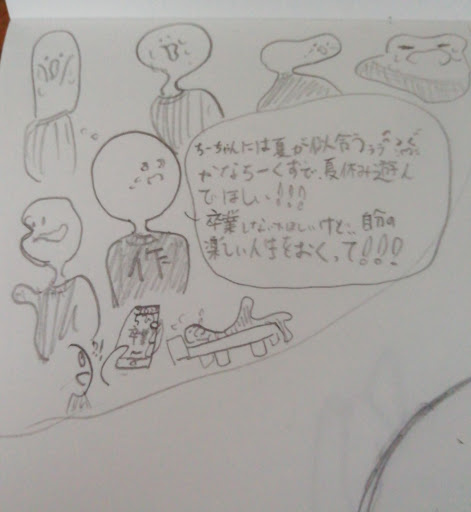 ちーちゃんには夏が似合うぅぅ
かなちーくすで、夏休み遊ん
でほしい!!!
卒業しないでほしいけど、、自分の
楽しい人生をおくって!!!
作
卒業